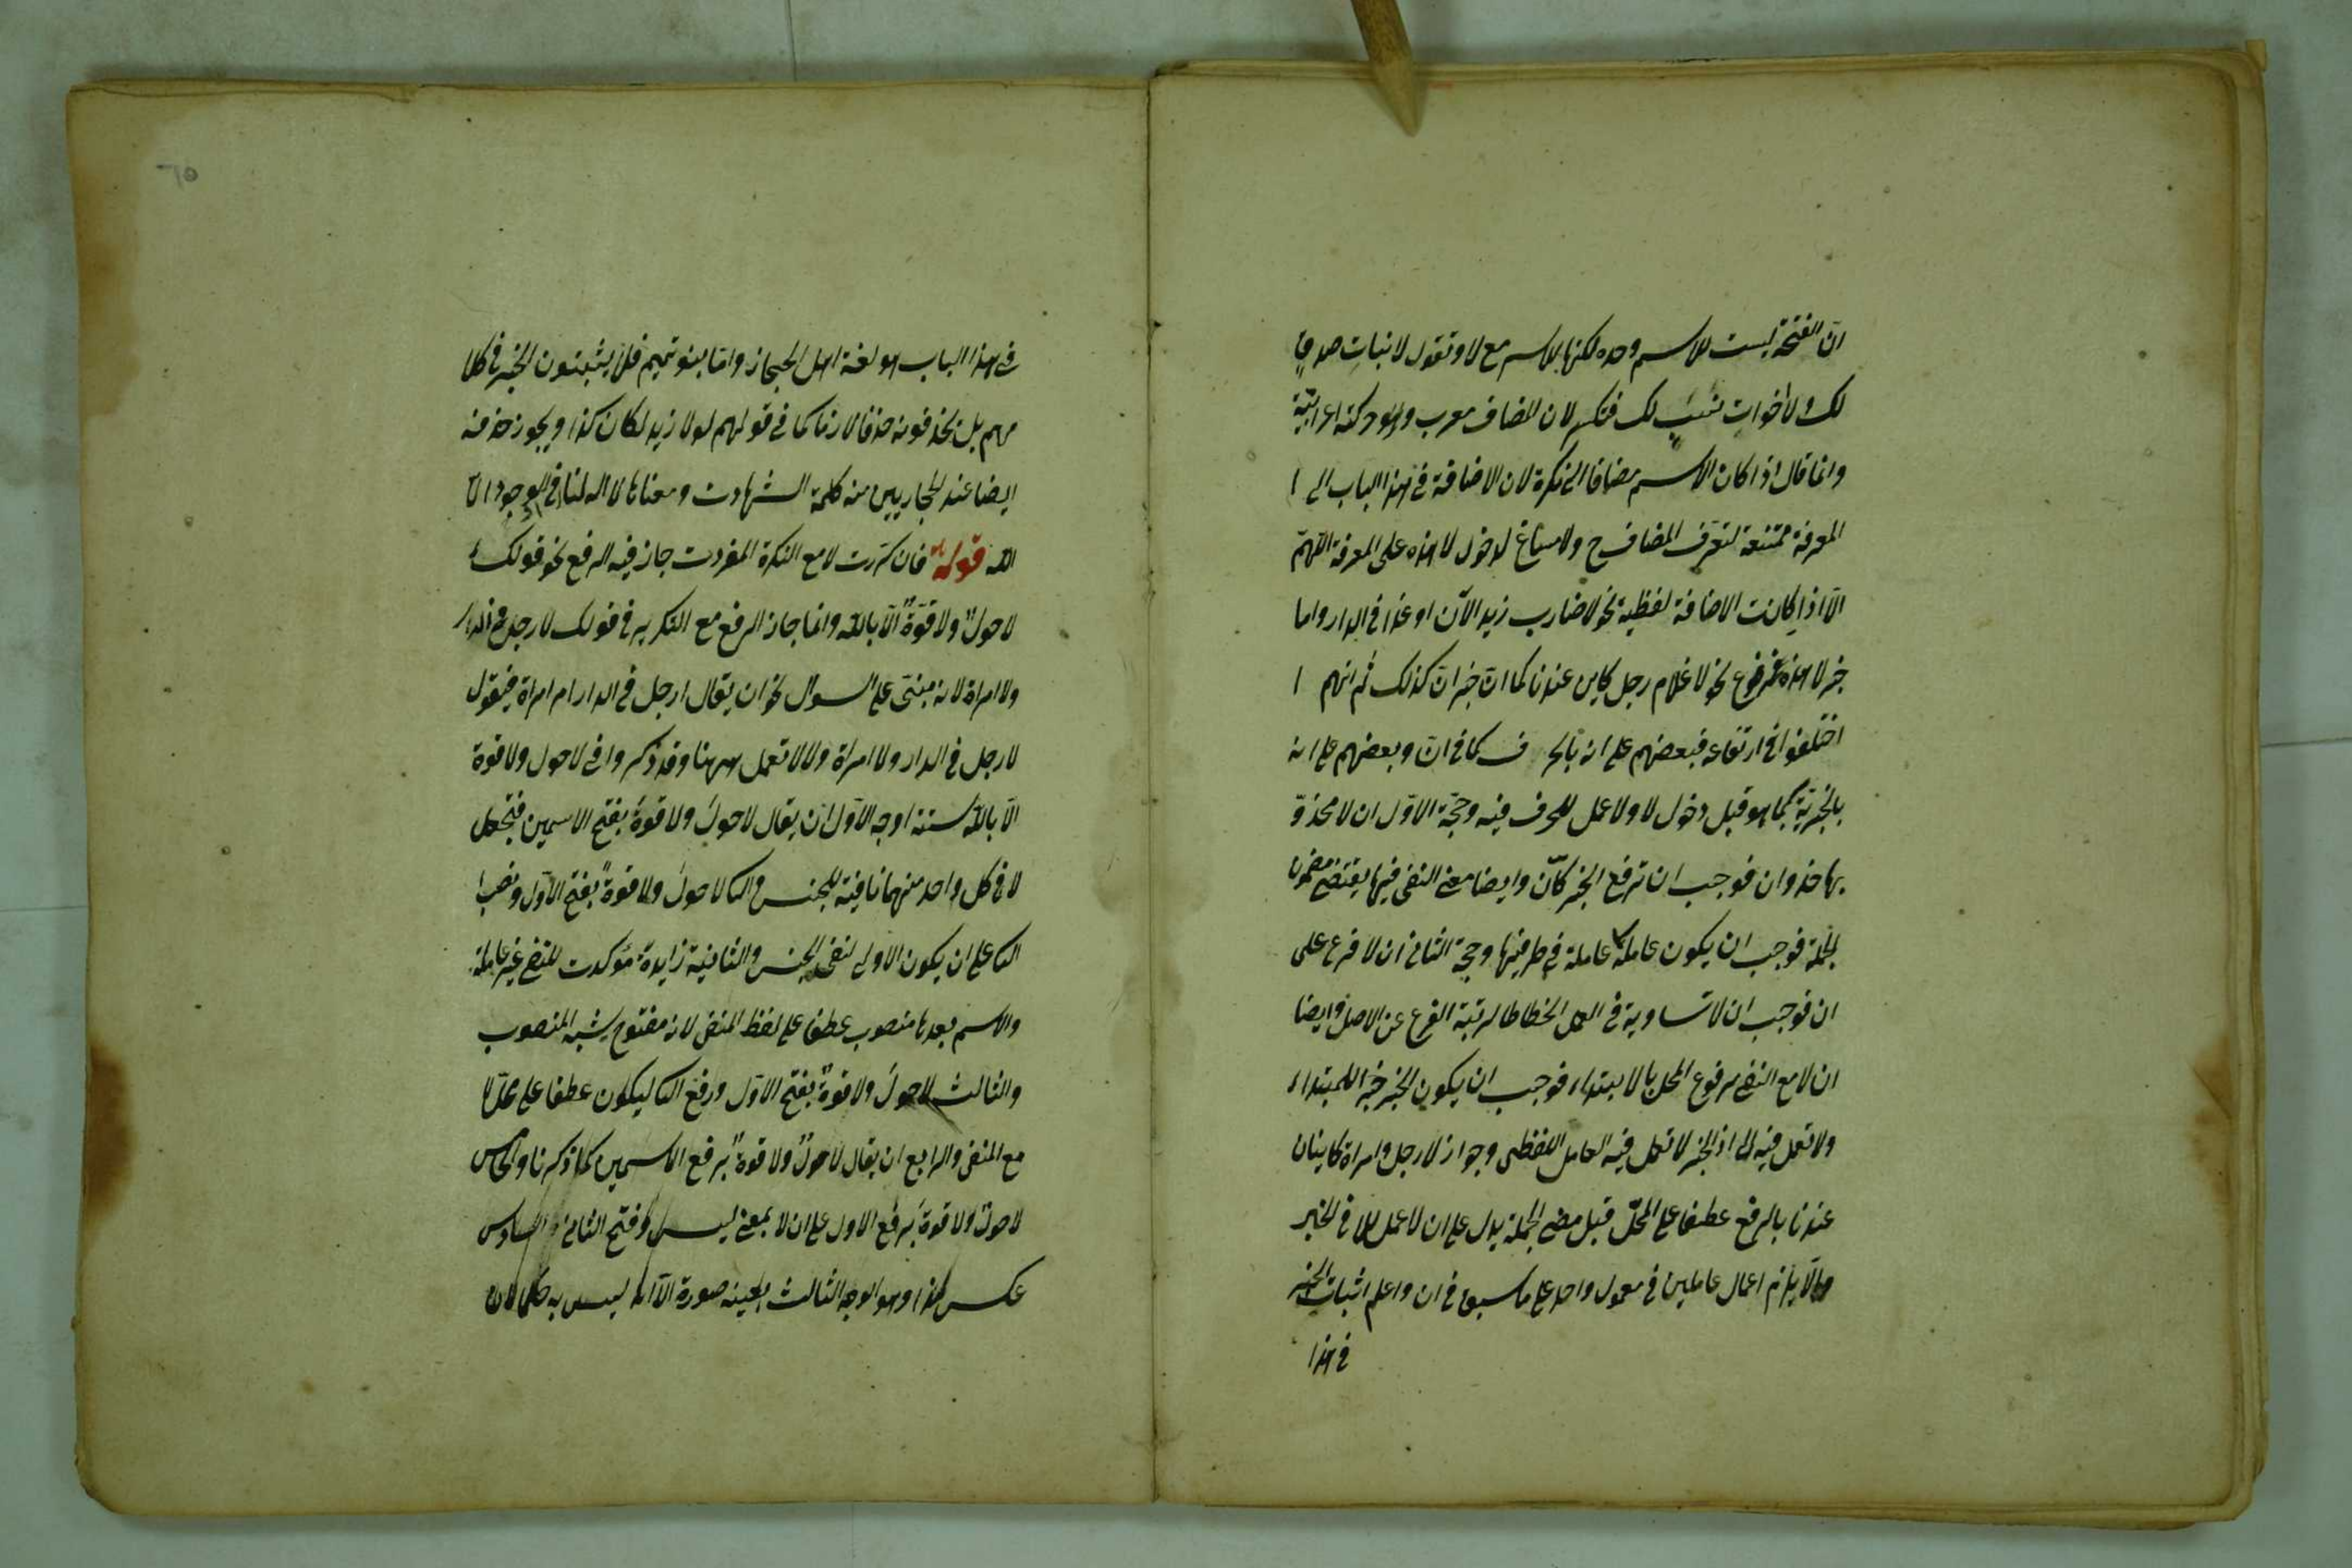 ان الفتحة ليست للاسم وحده لكنها للاسم مع لا وتقول لا نبات صدق
لك ولا خوات نسب لك فتكسر لان المضاف معرب وهو حركة اعرابية
وانما قال اذا كان الاسم مضافا الى نكرة لان الاضافة فى هذا الباب الى ا
المعرفة ممتنعة لتعرف المضاف ح ولا مساغ لدخول لا هذه على المعرفة اللهم
الا اذا كانت الاضافة لفظية نحو لا ضارب زيد الآن او غدا فى الدار واما
خبر لا هذه فمرفوع نحو لا غلام رجل كاين عندنا كما ان خبر ان كذلك ثم انهم ا
اختلفوا فى ارتفاعه فبعضهم على انه بالحرف كما فى ان وبعضهم على انه
بالخبرية كما هو قبل دخول لا ولا عمل للحرف فيه وحجة الاول ان لا محذو
بها حذو ان فوجب ان ترفع الخبر كان وايضا معنى النفى فيها يقتضى مضمون
الجملة فوجب ان يكون عاملة عاملة فى طرفيها وحجة الثانى ان لا فرع على
ان فوجب ان لا تساويه فى العمل انحطاطا لرتبة الفرع عن الاصل وايضا
ان لا مع النفى مرفوع المحل بالابتداء فوجب ان يكون الخبر خبرا للمبتداء
ولا تعمل فيه لا اذ الخبر لا تعمل فيه العامل اللفظى وجواز لا رجل وامراة كاينان
عندنا بالرفع عطفا على المحل قبل مضى الجملة يدل على ان لا عمل للا فى الخبر
والا يلزم اعمال عاملين فى معمول واحد على ما سبق فى ان واعلم اثبات الخبر
فى هذا
٦٥
فى هذا الباب هو لغة اهل الحجاز واما بنو تميم فلا يثبتون الخبر فى كلا
مهم بل يحذفونه حذفا لازما كما فى قولهم لولا زيد لكان كذا ويجوز حذفه
ايضا عند الحجازيين منه كلمة الشهادت ومعناها لا اله لنا فى الوجود الا
الله قوله فان كررت لا مع النكرة المفردت جاز فيه الرفع نحو قولك
لا حول ولا قوة الا بالله وانما جاز الرفع مع التكرير فى قولك لا رجل فى الدار
ولا امراة لانه مبنى على السوال نحو ان يقال ارجل فى الدار ام امراة فيقول
لا رجل فى الدار ولا امراة ولا لا تعمل ههنا وقد ذكروا فى لا حول ولا قوة
الا بالله ستة اوجه الاول ان يقال لا حول ولا قوة بفتح الاسمين فتجعل
لا فى كل واحد منهما نافية للجنس والثا لا حول ولا قوة بفتح الاول ونصب ا
الثا على ان يكون الاولى لنفى الجنس والثانية زايدة مؤكدت للنفى غير عاملة
والاسم بعدها منصوب عطفا على لفظ المنفى لانه مفتوح يشبه المنصوب
والثالث لا حول ولا قوة بفتح الاول ورفع الثا ليكون عطفا على محل لا
مع المنفى والرابع ان يقال لا حول ولا قوة برفع الاسمين كما ذكرنا والخامس
لا حول ولا قوة برفع الاول على ان لا بمعنى ليس وفتح الثانى والسادس
عكس هذا وهو الوجه الثالث بعينه صورة الا انه ليس به حكما لان